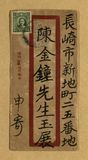 長崎市新地町二五番地
陳金鐘先生玉展
申寄